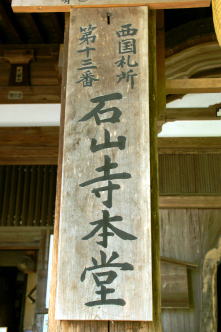 西国札所
第十三番
石山寺本堂